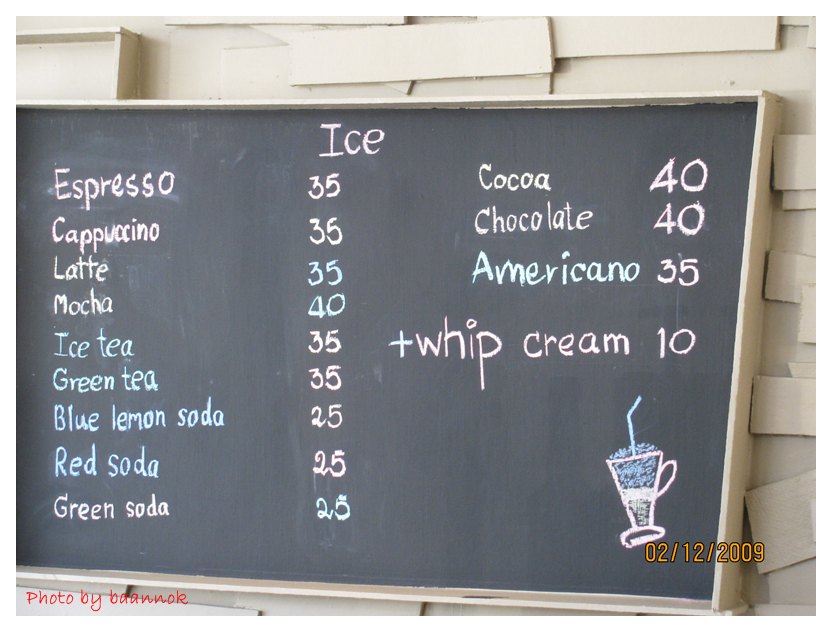 Ice
Espresso 35
Cappuccino 35
Latte 35
Mocha 40
Ice tea 35
Green tea 35
Blue lemon soda 25
Red soda 25
Green soda 25
Cocoa 40
Chocolate 40
Americano 35
+whip cream 10
02/12/2009
Photo by baannok